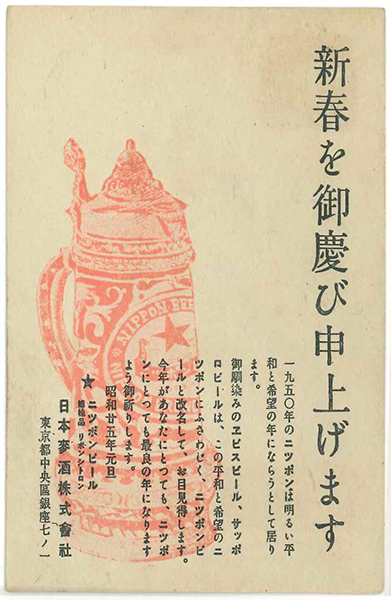 新春を御慶び申上げます
一九五〇年のニツポンは明るい平
和と希望の年にならうとして居り
ます。
御馴染みのヱビスビール、サッポ
ロビールは、この平和と希望のニ
ツポンにふさわしく、ニツポンビ
ールと改名して、お目見得します。
今年があなたにとつても、ニツポ
ンにとつても最良の年になります
よう御祈りします。
昭和廿五年元旦
★ ニツポンビール
姉妹品 リボンシトロン
日本麥酒株式會社
東京都中央區銀座七ノ一
NIPPON BEER